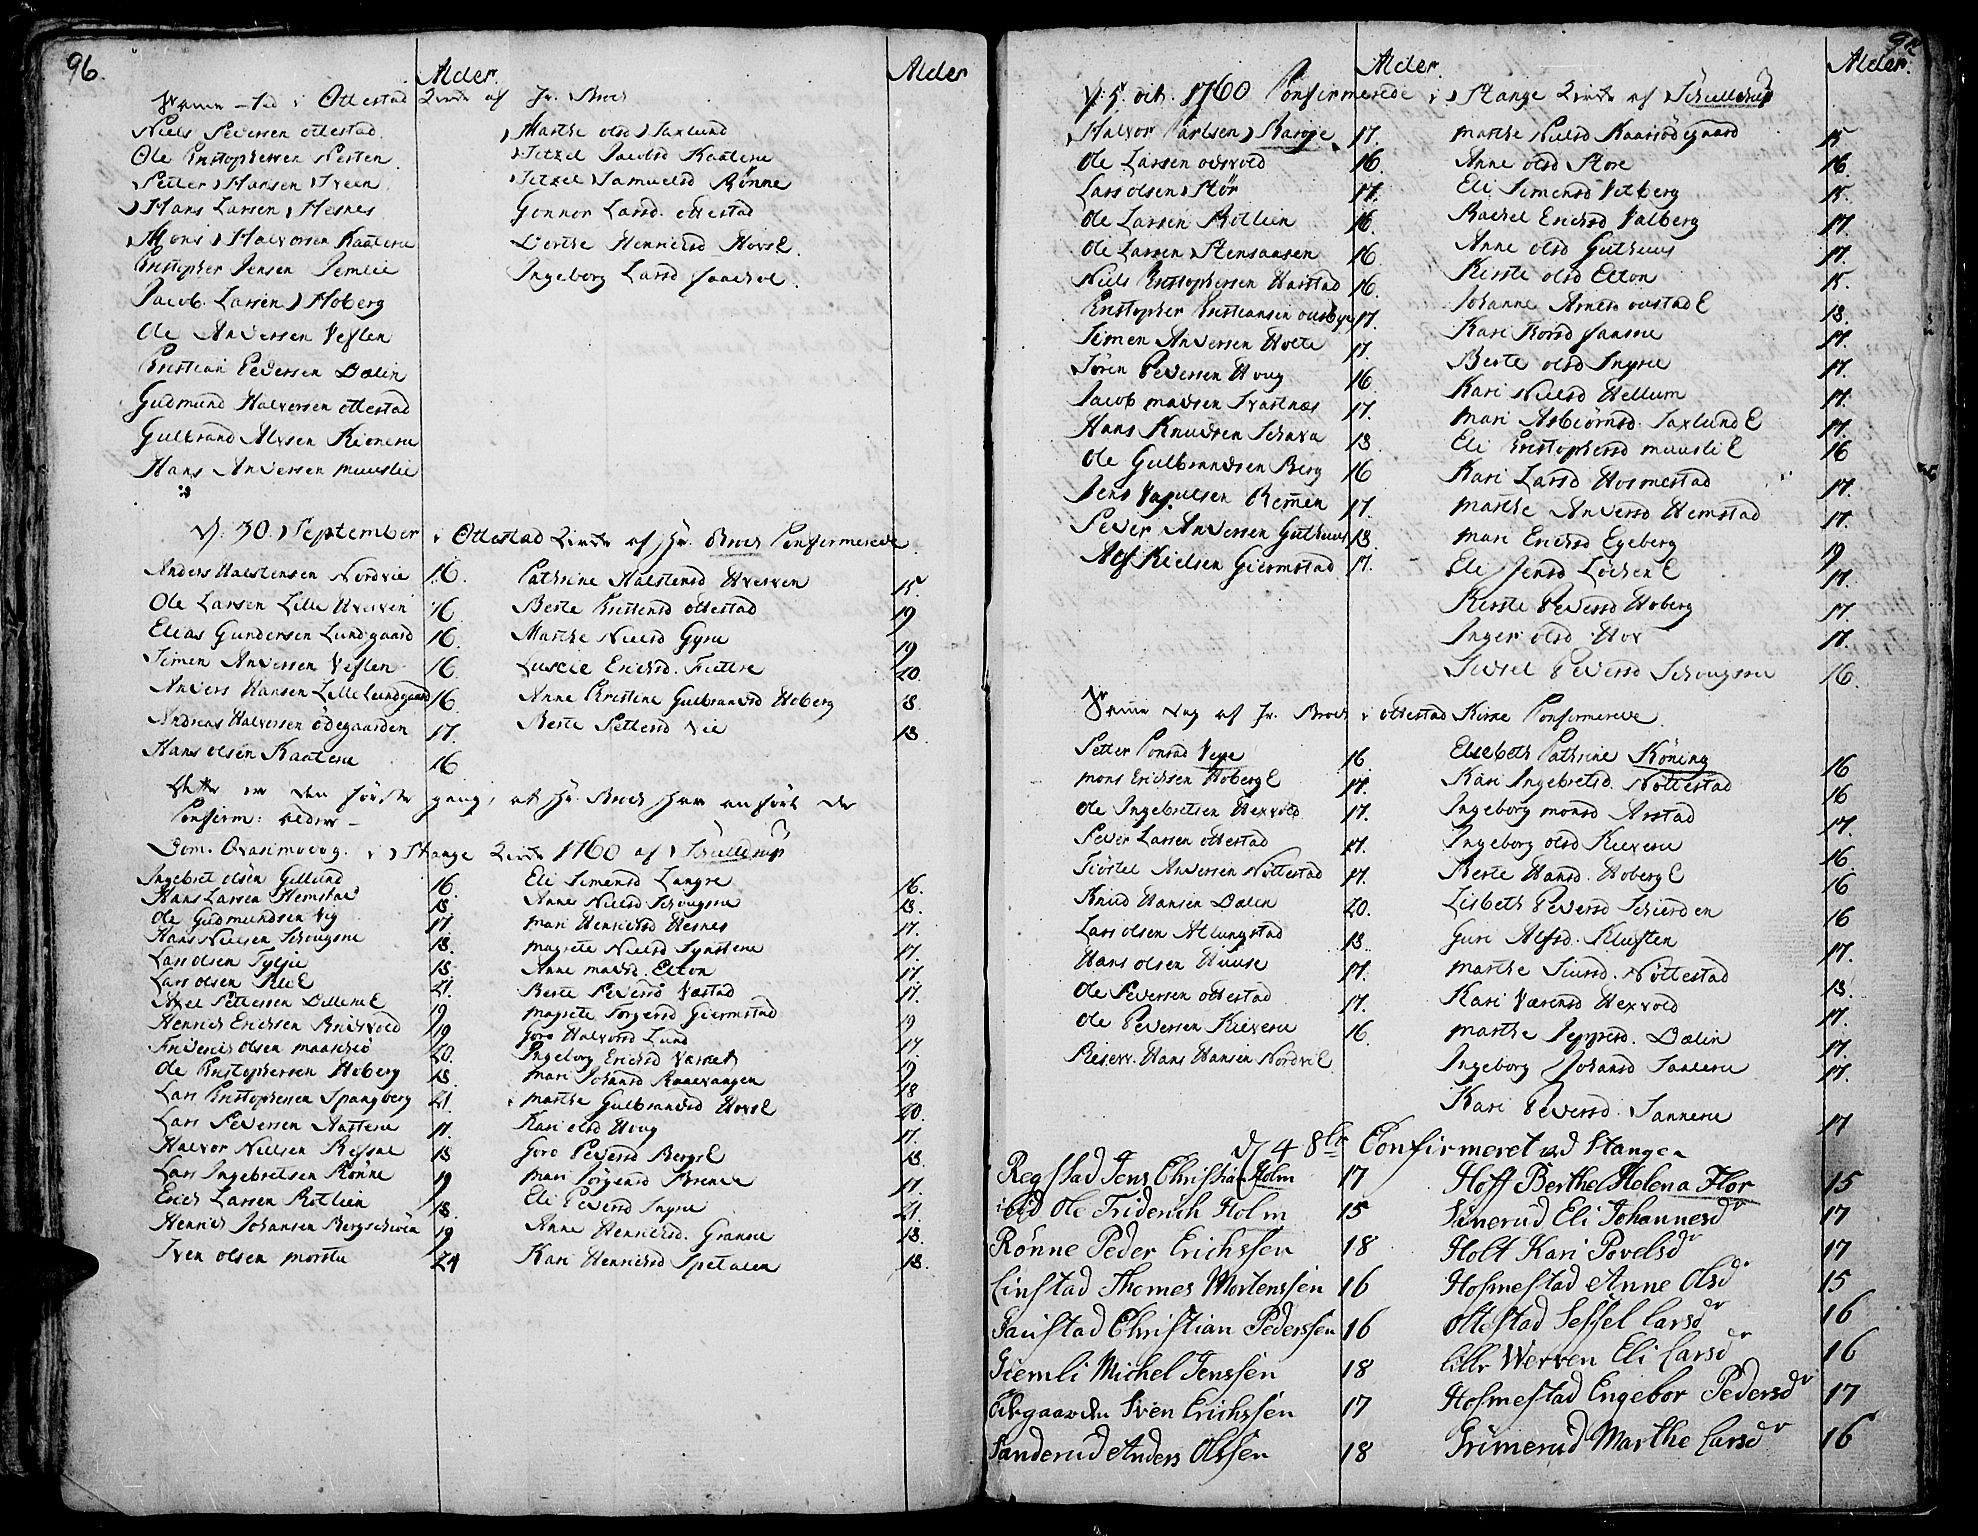 96.
Alder.
Alder
i Ottestad Kirke af Hr. Broch
Niels Pedersen Ottestad.
Ole Christophersen Nesten
Petter Hansen Tveen
Hans Larsen Hesnes
Mons Halvorsen Kaaterue
Christopher Jensen Jemlie
Jacob Larsen Hoberg
Ole Andersen Veslen
Christian Pedersen Dælin
Gudmund Halvorsen Ottestad
Gulbrand Alvsen Kionerue
Hans Andersen Muuslie
Marthe Olsd Saxlund
Sitzel Jacobsd Kaaterue
Sitzel Samuelsd Rønne
Gonnor Larsd. Ottestad
Dorthe Henrichsd Hovs E.
Ingeborg Larsd
D. 30. September i Ottestad Kirke af Hr. Broch Confirmerede
Anders Halstensen Nordvie 16. Cathrine Halstensd Hverven 15.
Ole Larsen Lille Hverven 16. Berte Christensd Ottestad 19
Elias Gundersen Lundgaard 16. Marthe Nielsd Gyrue 19
Simen Andersen Veslen 16 Luscie Erichsd. 20.
Anders Hansen Lille Lundgaard 16. Anne Christine Gulbrandsd Hoberg 18.
Andreas Halvorsen Ödegaarden 17. Berte Pettersd Vie 18.
Hans Olsen Kaaterue 16
Dette er den første gang, at Hr. Broch har anført de
Confirm: alder –
Dom. Qvasimodog. i Stange Kirke 1760 af Schielderup
Ingebret Olsen Gillund 16. Eli Simensd Langre 16.
Hans Larsen Hemstad 18. Anne Nielsd Schougrue 18.
Ole Gudmundsen Vig 17 Mari Henrichsd Hesnes 17.
Hans Nielsen Schougrue 18. Magrete Nielsd Synsterue 17.
Lars Olsen Tylie 18. Anne Madsd. Elton 17
Lars Olsen 21. Berte Pedersd Vestad 17.
Axel Pettersen Dillerue E 19 Magrete Torgersd Giermstad 19
Henrich Erichsen 19 Goro Halvorsd Lund 17.
Friderich Olsen 20. Ingeborg Erichsd 19
Ole Christophersen Hoberg 18. Mari Johansd Raaevangen 18
Lars Christophersen Spangberg 21. Marthe Gulbrandsd Hovs E 20.
Lars Pedersen Aasterue 17. Kari Olsd Houg 17.
Halvor Nielsen 18 Goro Pedersd Bergs E 18.
Lars Ingebretsen Rønne 19 Mari Jørgensd 17.
Erich Larsen Rotlien 18. Eli Pedersd Ingrue 21.
Henrich Johansen Bergscheën 19 Anne Henrichsd. Granrue 18.
Iven Olsen 24 Kari Henrichsd Spetalen 18.
Alder.
Alder.
D. 5. oct. 1760 Confirmerede i Stange Kirke af Schielderup
Halvor Carlsen 17. Marthe Nielsd Kaarsødegaard 15
Ole Larsen Odsvold 16. Anne Olsd Stor 16.
Lars Olsen Stör 17. Eli Simensd Vitberg 15.
Ole Larsen Rotlien 16. Rachel Erichsd Valberg 17.
Ole Larsen Stensaasen 16 Anne Olsd Guthuus 17.
Niels Christophersen Harstad 16. Kirste Olsd Elton 15.
Christopher Christiansen Ousbye 17. Johanne Arnesd Oustad E 18.
Simen Andersen Holte 17. Kari Torsd 17.
Sören Pedersen Houg 16 Berte Olsd Ingrue 17.
Jacob Madsen Svartnæs 17. Kari Nielsd Hellum 17.
Hans Knudsen 18 Mari Asbiörnsd. Saxlund E 17.
Ole Gulbrandsen Berg 16 Eli Christophersd Muusli E 16
Jens Poulsen Remen 17. Kari Larsd Hosmestad 17.
Peder Andersen Guthuus 18. Marthe Andersd Hemstad 17.
Alf Kielsen Giermstad 17. Mari Erichsd Egeberg 19
Eli Jensd Löchen E 17.
Kirste Pedersd Hoberg 17.
Inger Olsd Hov 17.
Sidsel Pedersd Schougrue 16.
Samme dag af Hr. Broch i Ottestad Kirke Confirmerede.
Petter Conrad Veye 16. Elsebeth Cathrine Köning 16
Mons Erichsen Hoberg E 17. Kari Ingebretsd. Nöttestad 16
Ole Ingebretsen Hexvold 17. Ingeborg Monsd Arstad 17.
Peder Larsen Ottestad 17. Ingeborg Olsd Kieverue 16
Tiöstel Andersen Nöttestad 17. Berte Hansd. Hoberg E 16
Knud Hansen Dælin 20. Lisbeth Pedersd 16
Lars Olsen Alungstad 18. Guri Alfsd. 17.
Hans Olsen Huuse 17. Marthe Siursd. Nöttestad 18.
Ole Pedersen Ottestad 17. Kari Værensd Hexvold 17.
Ole Pedersen Kieverue 16. Marthe Jepsd. Dælin 17.
Reserv. Hans Hansen Nordvi E Ingeborg Johansd 17.
Kari Pedersd. Sannerue 17
d 4 8br Confirmeret ved Stange
Regstad Jens Christian Holm 17 Hoff Berthe Helena Flor 15
ibid Ole Friderich Holm 15 Simerud Eli Johannesdr 17
Rönne Peder Erichssen 18 Holt Kari Povelsdr 17
Linstad Thomes Mortenssen 16 Hosmestad Anne Olsdr 15
Gaustad Christian Pederssen 16 Ottestad Sessel Larsdr 16
Giemli Michel Jenssen 18 Lille Werven Eli Larsdr 16
Ödegaarden Sven Erichssen 17 Hosmestad Engebor Pedersdr 17
Sanderud Anders Olssen 18 Grimerud Marthe Larsdr 16